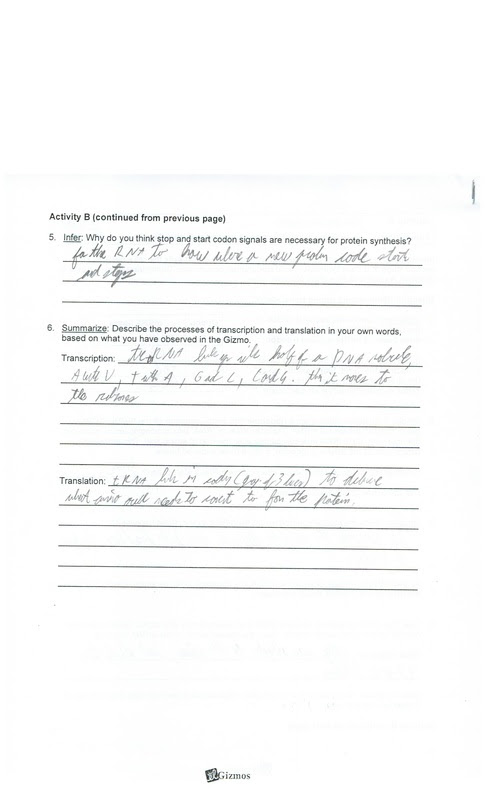 Activity B (continued from previous page)
5. Infer: Why do you think stop and start codon signals are necessary for protein synthesis?
for the RNA to know where a new protein code start
and stops
6. Summarize: Describe the processes of transcription and translation in your own words,
based on what you have observed in the Gizmo.
Transcription: RNA half of a DNA
A with U, T with A, G and C, C and G. to
the
Translation: tRNA in (group of 3) to
what needs to to the protein.
Gizmos